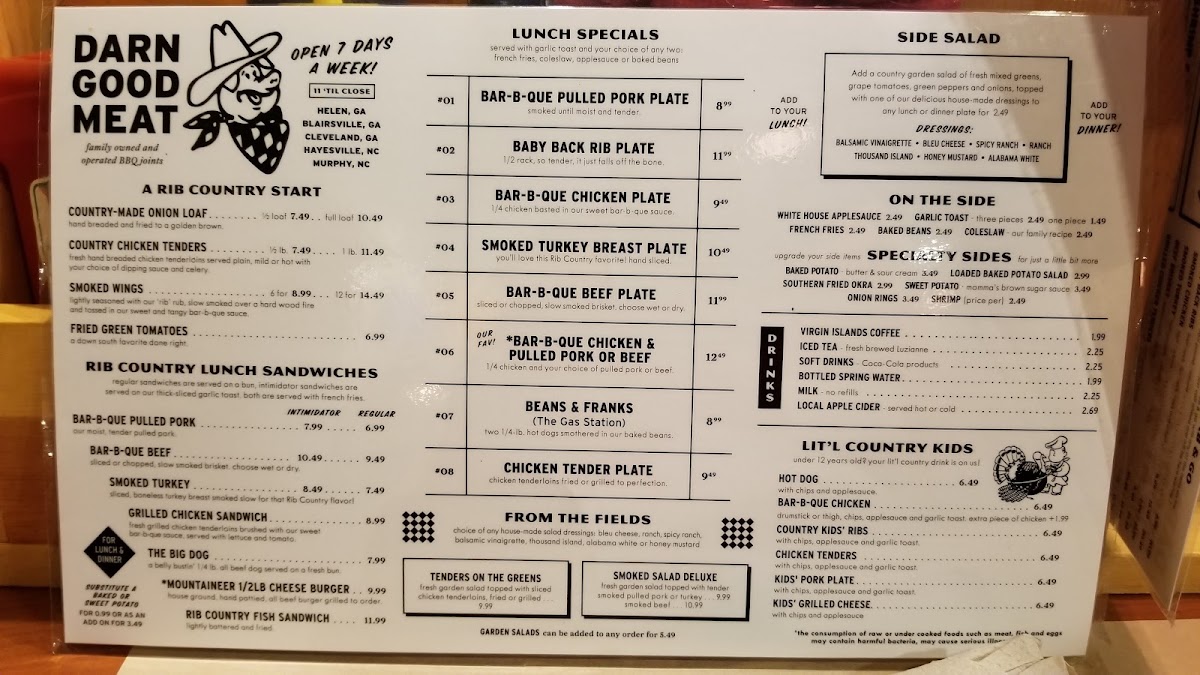 DARN
GOOD
MEAT
family owned and
operated BBQ joints
OPEN 7 DAYS
A WEEK!
11 'TIL CLOSE
HELEN, GA
BLAIRSVILLE, GA
CLEVELAND, GA
HAYESVILLE, NC
MURPHY, NC
A RIB COUNTRY START
COUNTRY-MADE ONION LOAF........ ½ loaf 7.49.. full loaf 10.49
hand breaded and fried to a golden brown.
COUNTRY CHICKEN TENDERS ......... ½ lb. 7.49.... 1 lb. 11.49
fresh hand breaded chicken tenderloins served plain, mild or hot with
your choice of dipping sauce and celery.
SMOKED WINGS .................. 6 for 8.99.... 12 for 14.49
lightly seasoned with our 'rib' rub, slow smoked over a hard wood fire
and tossed in our sweet and tangy bar-b-que sauce.
FRIED GREEN TOMATOES ......................... 6.99
a down south favorite done right.
RIB COUNTRY LUNCH SANDWICHES
regular sandwiches are served on a bun, intimidator sandwiches are
served on our thick-sliced garlic toast. both are served with french fries.
INTIMIDATOR REGULAR
BAR-B-QUE PULLED PORK ............... 7.99 ..... 6.99
our moist, tender pulled pork.
BAR-B-QUE BEEF ..................... 10.49 ..... 9.49
sliced or chopped, slow smoked brisket. choose wet or dry.
SMOKED TURKEY ................... 8.49 ..... 7.49
sliced, boneless turkey breast smoked slow for that Rib Country flavor!
GRILLED CHICKEN SANDWICH............... 8.99
fresh grilled chicken tenderloins brushed with our sweet
bar-b-que sauce, served with lettuce and tomato.
THE BIG DOG ......................... 7.99
a belly bustin' 1/4 lb. all beef dog served on a fresh bun.
*MOUNTAINEER 1/2LB CHEESE BURGER .. 9.99
house ground, hand pattied, all beef burger grilled to order.
RIB COUNTRY FISH SANDWICH .... 11.99
lightly battered and fried.
FOR
LUNCH &
DINNER
SUBSTITUTE A
BAKED OR
SWEET POTATO
FOR 0.99 OR AS AN
ADD ON FOR 3.49
LUNCH SPECIALS
served with garlic toast and your choice of any two:
french fries, coleslaw, applesauce or baked beans
#01 BAR-B-QUE PULLED PORK PLATE 8.99
smoked until moist and tender.
#02 BABY BACK RIB PLATE 11.99
1/2 rack, so tender, it just falls off the bone.
#03 BAR-B-QUE CHICKEN PLATE 9.49
1/4 chicken basted in our sweet bar-b-que sauce.
#04 SMOKED TURKEY BREAST PLATE 10.49
you'll love this Rib Country favorite! hand sliced.
#05 BAR-B-QUE BEEF PLATE 11.99
sliced or chopped, slow smoked brisket, choose wet or dry.
OUR
FAV!
#06 *BAR-B-QUE CHICKEN &
PULLED PORK OR BEEF 12.49
1/4 chicken and your choice of pulled pork or beef.
#07 BEANS & FRANKS
(The Gas Station) 8.99
two 1/4-lb. hot dogs smothered in our baked beans.
#08 CHICKEN TENDER PLATE 9.49
chicken tenderloins fried or grilled to perfection.
FROM THE FIELDS
choice of any house-made salad dressings: bleu cheese, ranch, spicy ranch,
balsamic vinaigrette, thousand island, alabama white or honey mustard
TENDERS ON THE GREENS
fresh garden salad topped with sliced
chicken tenderloins, fried or grilled ....
9.99
SMOKED SALAD DELUXE
fresh garden salad topped with tender
smoked pulled pork or turkey .... 9.99
smoked beef .... 10.99
GARDEN SALADS can be added to any order for 5.49
SIDE SALAD
ADD
TO YOUR
LUNCH!
Add a country garden salad of fresh mixed greens,
grape tomatoes, green peppers and onions, topped
with one of our delicious house-made dressings to
any lunch or dinner plate for 2.49
DRESSINGS:
BALSAMIC VINAIGRETTE • BLEU CHEESE • SPICY RANCH • RANCH
THOUSAND ISLAND • HONEY MUSTARD • ALABAMA WHITE
ADD
TO YOUR
DINNER!
ON THE SIDE
WHITE HOUSE APPLESAUCE 2.49 GARLIC TOAST - three pieces 2.49 one piece 1.49
FRENCH FRIES 2.49 BAKED BEANS 2.49 COLESLAW - our family recipe 2.49
upgrade your side items SPECIALTY SIDES for just a little bit more
BAKED POTATO - butter & sour cream 3.49 LOADED BAKED POTATO SALAD 2.99
SOUTHERN FRIED OKRA 2.99 SWEET POTATO - momma's brown sugar sauce 3.49
ONION RINGS 3.49 SHRIMP (price per) 2.49
DRINKS
VIRGIN ISLANDS COFFEE ......................... 1.99
Iced TEA - fresh brewed Luzianne ......................... 2.25
SOFT DRINKS - Coca-Cola products ......................... 2.25
BOTTLED SPRING WATER......................... 1.99
MILK - no refills ......................... 2.25
LOCAL APPLE CIDER - served hot or cold ................... 2.69
LIT'L COUNTRY KIDS
under 12 years old? your lit'l country drink is on us!
HOT DOG ......................... 6.49
with chips and applesauce.
BAR-B-QUE CHICKEN ......................... 6.49
drumstick or thigh, chips, applesauce and garlic toast. extra piece of chicken +1.99
COUNTRY KIDS' RIBS ......................... 6.49
with chips, applesauce and garlic toast.
CHICKEN TENDERS ......................... 6.49
with chips, applesauce and garlic toast.
KIDS' PORK PLATE......................... 6.49
with chips, applesauce and garlic toast.
KIDS' GRILLED CHEESE......................... 6.49
with chips and applesauce
*the consumption of raw or under cooked foods such as meat, fish and eggs
may contain harmful bacteria, may cause serious